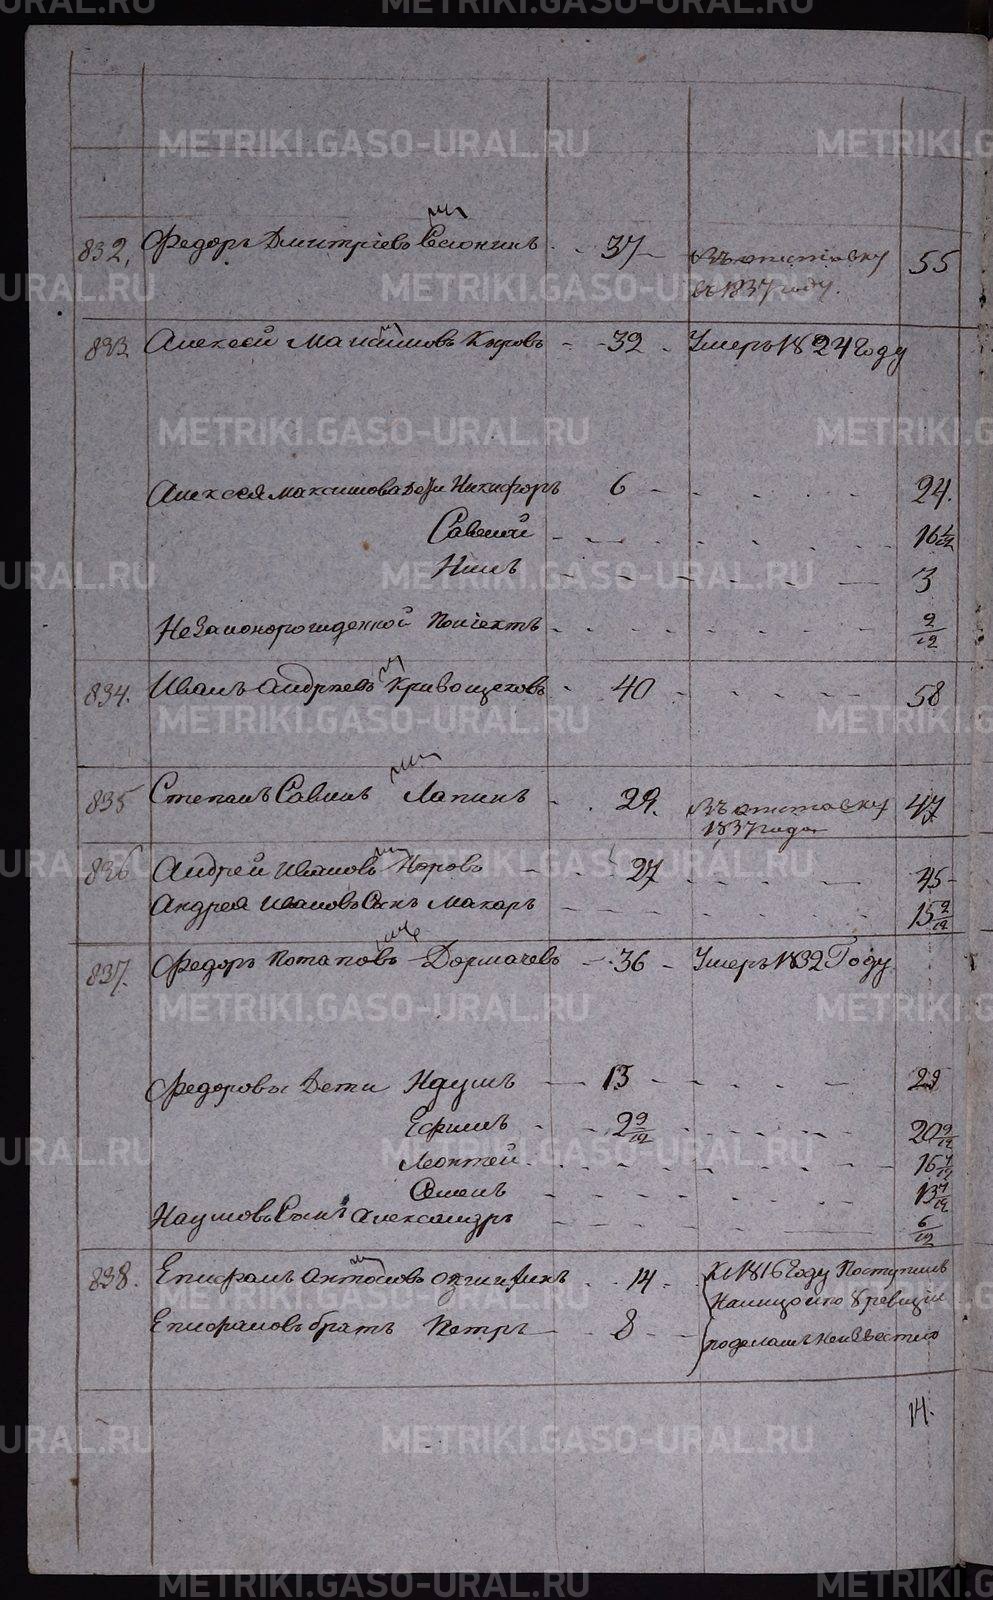 832, Федоръ Дмитріевъ - - 37 - Въ отставку 55
въ 1837 году.
833 Алексей Максимовъ - - 32 - Умеръ 1824 Году
Алексея максимова дети Никифоръ 6 24.
Савелий 16 1/12
Нилъ 3
Незаконорожденной 9/12
834. Иванъ Андреевъ Кривощековъ - 40 - 58
835 Степанъ Савинъ Лапинъ - - 29. Въ отставку 47
1837 года
836 Андрей Ивановъ - - 27 45
Андрея Ивановъ Сынъ Макаръ 15 9/12
837. Федоръ Потаповъ Дормачевъ - 36 - Умеръ 1832 Году
Федоровы Дети Наумъ 13 25
Ефимъ 2 9/12 20 9/12
Леонтей 16 4/12
Семенъ 13 4/12
Наумовъ Сынъ Александръ 6/12
838. Епифанъ Антоновъ - - 14 - Въ 1816 Году Поступилъ
по 8 ревизіи
Епифановъ братъ Петръ 8 неизвестно
14.
METRIKI.GASO-URAL.RU